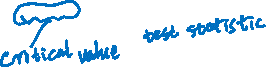 critical value test statistic